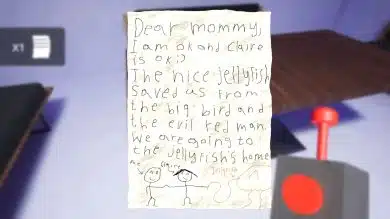 X1
Dear mommy,
I am ok and Claire
is ok:)
The nice jellyfish
saved us from
the big bird and
the evil red man.
we are going to
the jellyfish's home
me Claire